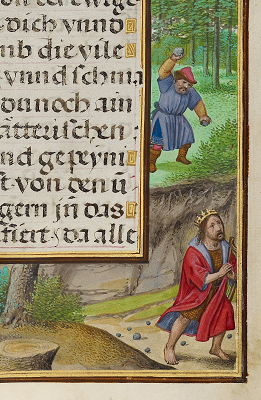 dich vnnd
mb die vile
vnnd schma
dannoch ain
ätterischen
nd gepeyni
st von den ũ
gern jn das
füert da alle